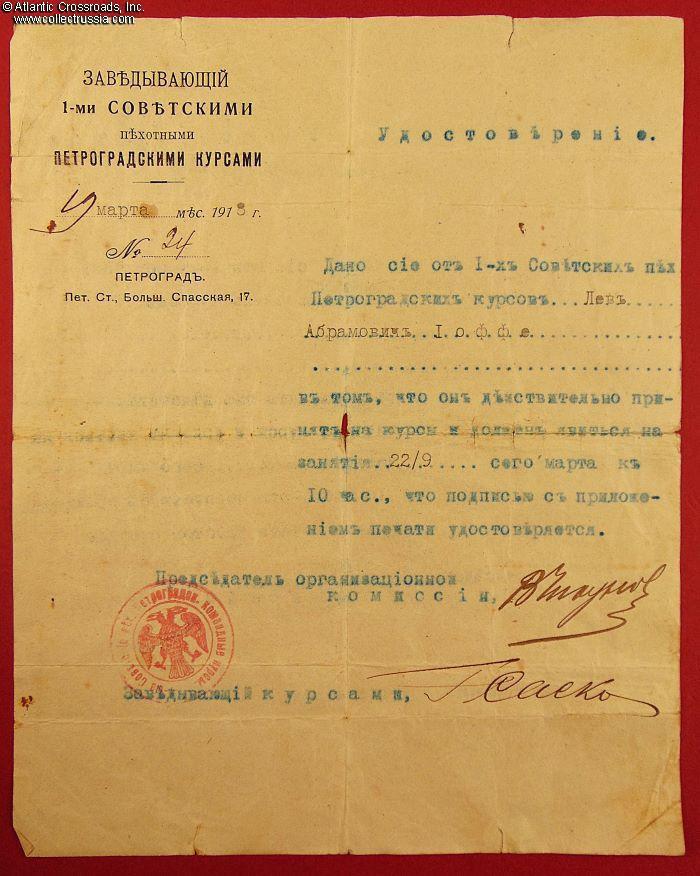 © Atlantic Crossroads, Inc.
www.collectrussia.com
ЗАВѢДЫВАЮЩІЙ
1-ми СОВѢТСКИМИ
ПѢХОТНЫМИ
ПЕТРОГРАДСКИМИ КУРСАМИ
9 марта мѣс. 1918 г.
№ 24
ПЕТРОГРАДЪ.
Пет. Ст., Больш. Спасская, 17.
Удостовѣреніе.
Дано сіе отъ I-хъ Совѣтскихъ пѣх
Петроградскихъ курсовъ...Левъ
Абрамовичъ Іоффе
въ томъ, что онъ дѣйствительно при-
нятъ на курсы и долженъ явиться на
занятія..22/9..... сего марта къ
10 час., что подписью съ приложе-
ніемъ печати удостовѣряется.
Предсѣдатель организаціонной
комиссіи,
Завѣдывающій курсами,